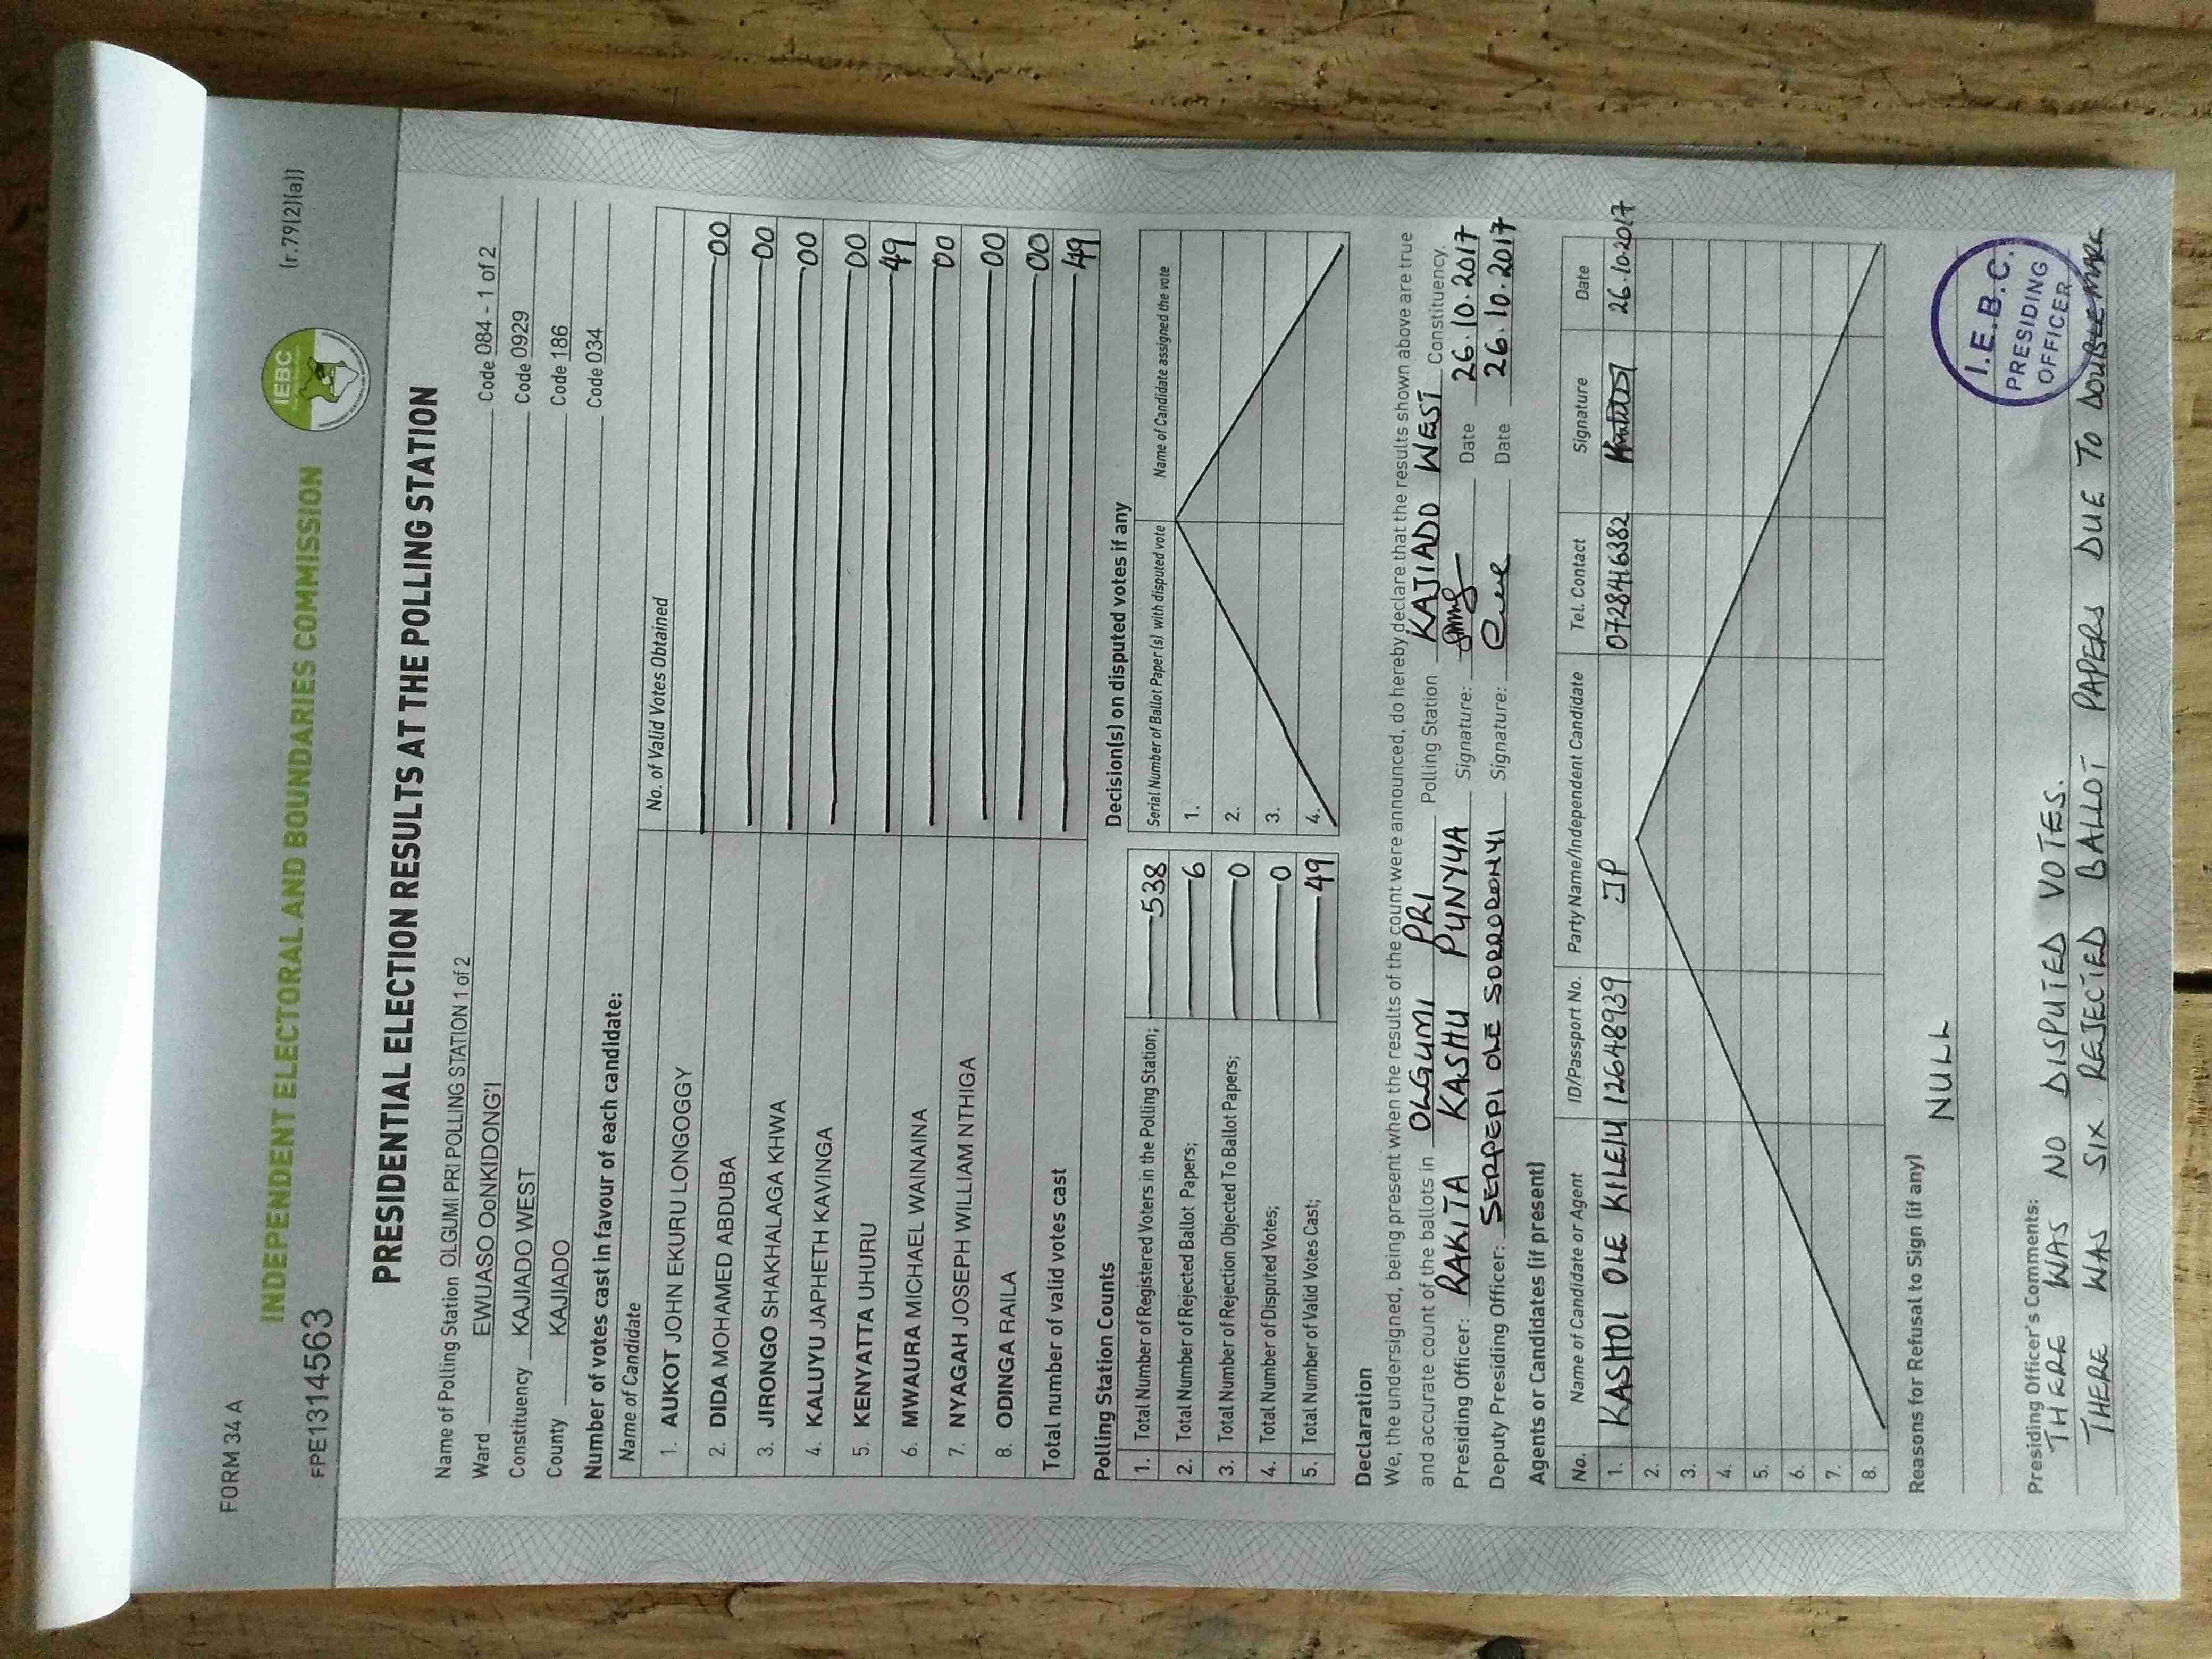 FORM 34A
(r.79(2)(a))
IEBC
INDEPENDENT ELECTORAL AND BOUNDARIES COMMISSION
FPE1314563
PRESIDENTIAL ELECTION RESULTS AT THE POLLING STATION
Name of Polling Station OLGUMI PRI POLLING STATION 1 of 2 Code 084 - 1 of 2
Ward EWUASO OoNKIDONG'I Code 0929
Constituency KAJIADO WEST Code 186
County KAJIADO Code 034
Number of votes cast in favour of each candidate:
Name of Candidate No. of Valid Votes Obtained
1. AUKOT JOHN EKURU LONGOGGY 00
2. DIDA MOHAMED ABDUBA 00
3. JIRONGO SHAKHALAGA KHWA 00
4. KALUYU JAPHETH KAVINGA 00
5. KENYATTA UHURU 49
6. MWAURA MICHAEL WAINAINA 00
7. NYAGAH JOSEPH WILLIAM NTHIGA 00
8. ODINGA RAILA 00
Total number of valid votes cast 49
Polling Station Counts
1. Total Number of Registered Voters in the Polling Station; 538
2. Total Number of Rejected Ballot Papers; 6
3. Total Number of Rejection Objected To Ballot Papers; 0
4. Total Number of Disputed Votes; 0
5. Total Number of Valid Votes Cast; 49
Decision(s) on disputed votes if any
Serial Number of Ballot Paper (s) with disputed vote Name of Candidate assigned the vote
1.
2.
3.
4.
Declaration
We, the undersigned, being present when the results of the count were announced, do hereby declare that the results shown above are true
and accurate count of the ballots in OLGUMI PRI Polling Station KAJIADO WEST Constituency.
Presiding Officer: RAKITA KASHU PUNYUA Signature: Date 26.10.2017
Deputy Presiding Officer: SERPEPI OLE SORRODONYI Signature: Date 26.10.2017
Agents or Candidates (if present)
No. Name of Candidate or Agent ID/Passport No. Party Name/Independent Candidate Tel. Contact Signature Date
1. KASHOI OLE KILELU 12648939 JP 0728416382 26.10.2017
2.
3.
4.
5.
6.
7.
8.
Reasons for Refusal to Sign (if any)
NULL
Presiding Officer's Comments:
THERE WAS NO DISPUTED VOTES.
THERE WAS SIX REJECTED BALLOT PAPERS DUE TO DOUBLE MARK
I.E.B.C.
PRESIDING
OFFICER